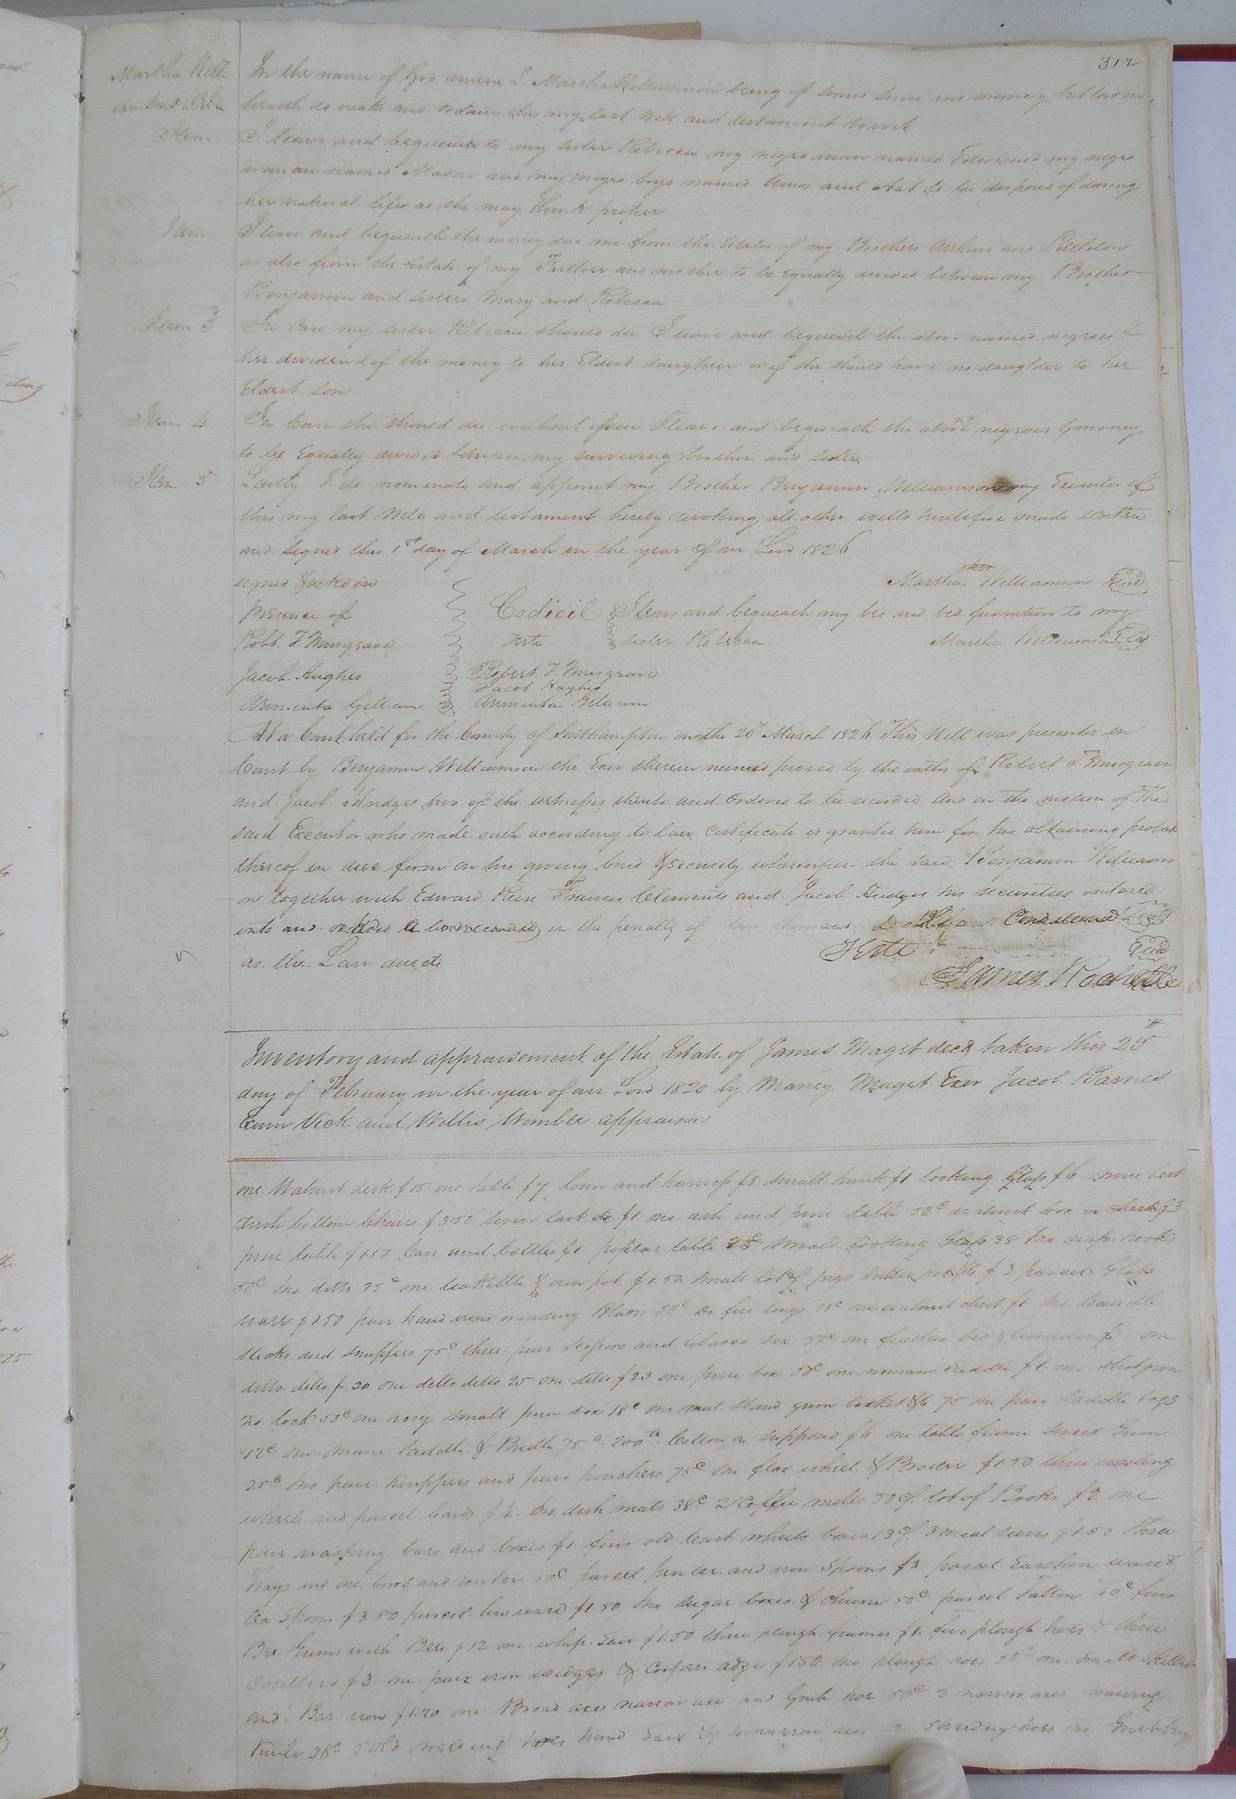 312
Martha Will
iamsons Will
In the name of God amen I Martha Williamson being of sound sense and memory but low in
health do make and ordain this my last Will and testament to wit
Item
I leave and bequeath to my sister Rebecca my negro man named Edmund my negro
woman named Mason and my negro boys named Amos and Nat to be disposed of during
her natural life as she may think proper
Item
I leave and bequeath the money due me from the Estates of my Brothers and Littleton
as also from the Estate of my Farther and mother to be Equally devided between my Brother
Benjamin and sisters Mary and Rebecca
Item 3
In Case my sister Rebecca should die I leave and bequeath the above named negroes &
her devidend of the money to her Eldest daughter or if she should have no daughter to her
Eldest son
Item 4
In Case she should die without issue I leave and bequeath the above negroes & money
to be Equally devided between my surviving brother and sister
Item 5
Lastly I do nominate and appoint my Brother Benjamin Williamson my Executor of
this my last Will and testament hereby revoking all other wills heretofore made
and signed this 1st day of March in the year of our Lord 1826
Martha her Williamson Seal
signed & acked in
presence of
Robt. T. Musgrave
Jacob Hughes
Arminta Gilliam
Codicil I leave and bequeath my bed and bed furniture to my
Teste sister Rebecca Martha Williamson Seal
Robert T. Musgrave
Jacob Hughes
Arminta Gilliam
At a Court held for the County of Southampton on the 20th March 1826 This Will was presented in
Court by Benjamin Williamson the Exor therein named proved by the oaths of Robert T Musgrave
and Jacob Hudges two of the witnesses thereto and Ordered to be recorded And on the motion of the
said Executor who made oath according to law Certificate is granted him for his obtaining probat
thereof in due form on his giving bond & security whereupon the said Benjamin William
son together with Edward Francis Clements and Jacob Hudges his securities entered
into and a bond in the penalty of thousand Dollars Conditioned
as the Law directs
Teste
James Rochelle
Inventory and appraisement of the Estate of James Maget decd taken this 25th
day of February in the year of our Lord 1820 by Maney Maget Exor Jacob Barnes
Exum Vick and Willis Womble appraisors
one Walnut desk $15 one table $7 loom and harness $8 small trunk $1 looking Glass $6 nine best
rush bottom Chairs $3.50 seven last do $1 one ash and pine table 50c walnut box or desk $3
pine table $1.50 Case and bottles $1 poplar table 25c small looking Glass 38
50c two ditto 25c one teakettle & iron pot $1.50 small lot of jugs butter pot &c $3 parcel Glass
ware $2.50 pair hand irons 50c do fire tongs 38c one walnut chest $1 two Candle
sticks and snuffers 75c three pair scissors and tobacco box 37c one feather bed & furniture one
ditto ditto $20 one ditto ditto 25 one ditto $23 one pine box 50c one womans saddle $1 one shotgun
no lock 50c one very small pine box 18c one meal stand gum basket &c 75 one pair saddle bags
12c one mans saddle & Bridle 75c 200 lb Cotton as supposed $6 one table frame
25c two pair and pair pinchers 75c one flax wheel & $1.50 three
wheels and parcel Cards $4 two dish mats 38c 2 Coffee mills 50c lot of Books $2 one
pair and boxes $1 four old Cart wheels boxes 13c 3 meal sieves $1.50 three
Trays and one bowl and 50c parcel pewter and iron Spoons $3 parcel Earthen ware &
tea Spoons $3.50 parcel tin ware $1.50 two sugar boxes & churn 50c parcel Tallow 10c four
Bee Gums with Bees $12 one whip saw $1.50 three plough frames $1 five plough hoes three
Coulters $3 one pair iron wedges & Coopers adze $1.50 two plough hoes one small
and Bar iron $1.20 one Broad axe narrow axe and Grub hoe 50c 2 narrow axes drawing
Knife 38c 5 old weeding hoes hand saw & narrow axe weeding hoes two Grubbing